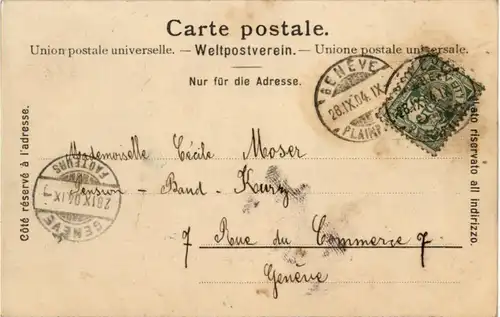 Carte postale.
Union postale universelle. — Weltpostverein. — Unione postale universale.
Nur für die Adresse.
Côté réservé à l'adresse.
lato riservato all indirizzo.
GENÈVE
28.IX.04.IX
PLAINP
HELVETIA
Mademoiselle Cécile Moser
Pension - Band - Kurz
7 Rue du Commerce 7
Genève
FACTEURS
28.IX.04.IX
GENÈVE